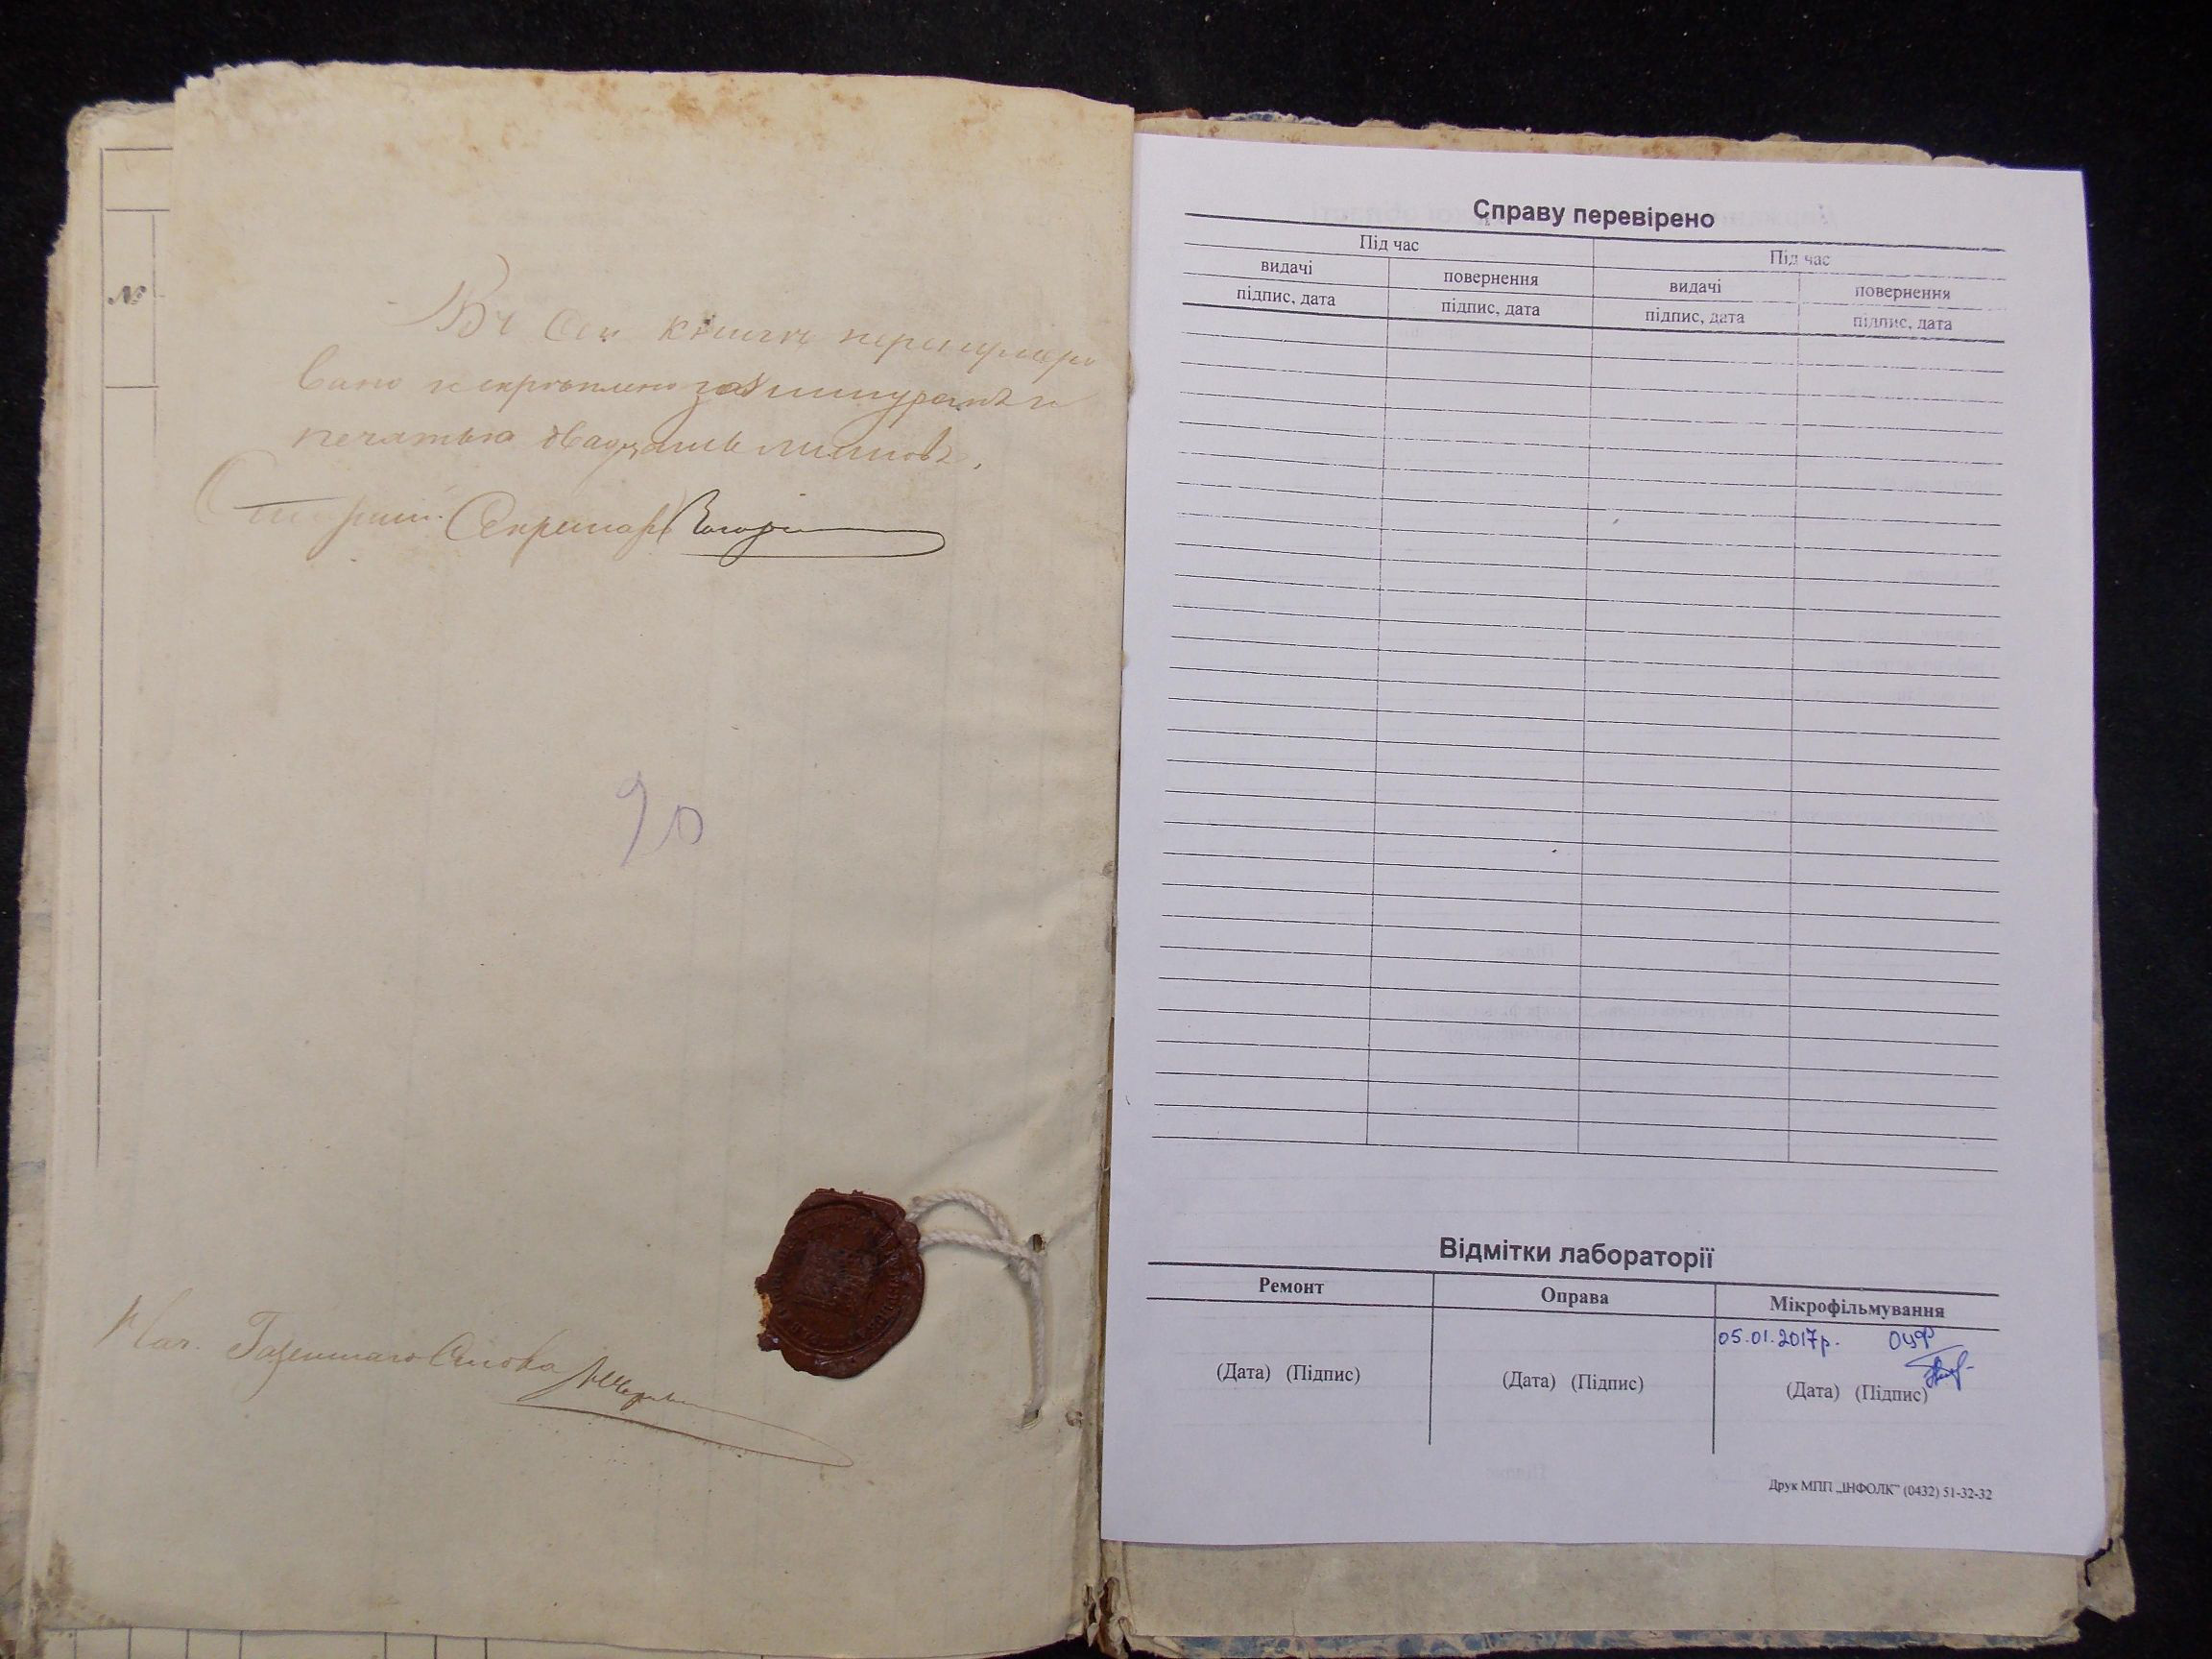 №
Въ Сей книгѣ перенумеро
вано и скрѣплено за шнуромъ и
печатью двадцать листовъ.
Старшій Секретарь
20
Нач. Газетнаго Стола
Справу перевірено
Під час Під час
видачі повернення видачі повернення
підпис, дата підпис, дата підпис, дата підпис, дата
Відмітки лабораторії
Ремонт Оправа Мікрофільмування
05.01.2017р. ОЦФ
(Дата) (Підпис) (Дата) (Підпис) (Дата) (Підпис)
Друк МПП „ІНФОЛК” (0432) 51-32-32